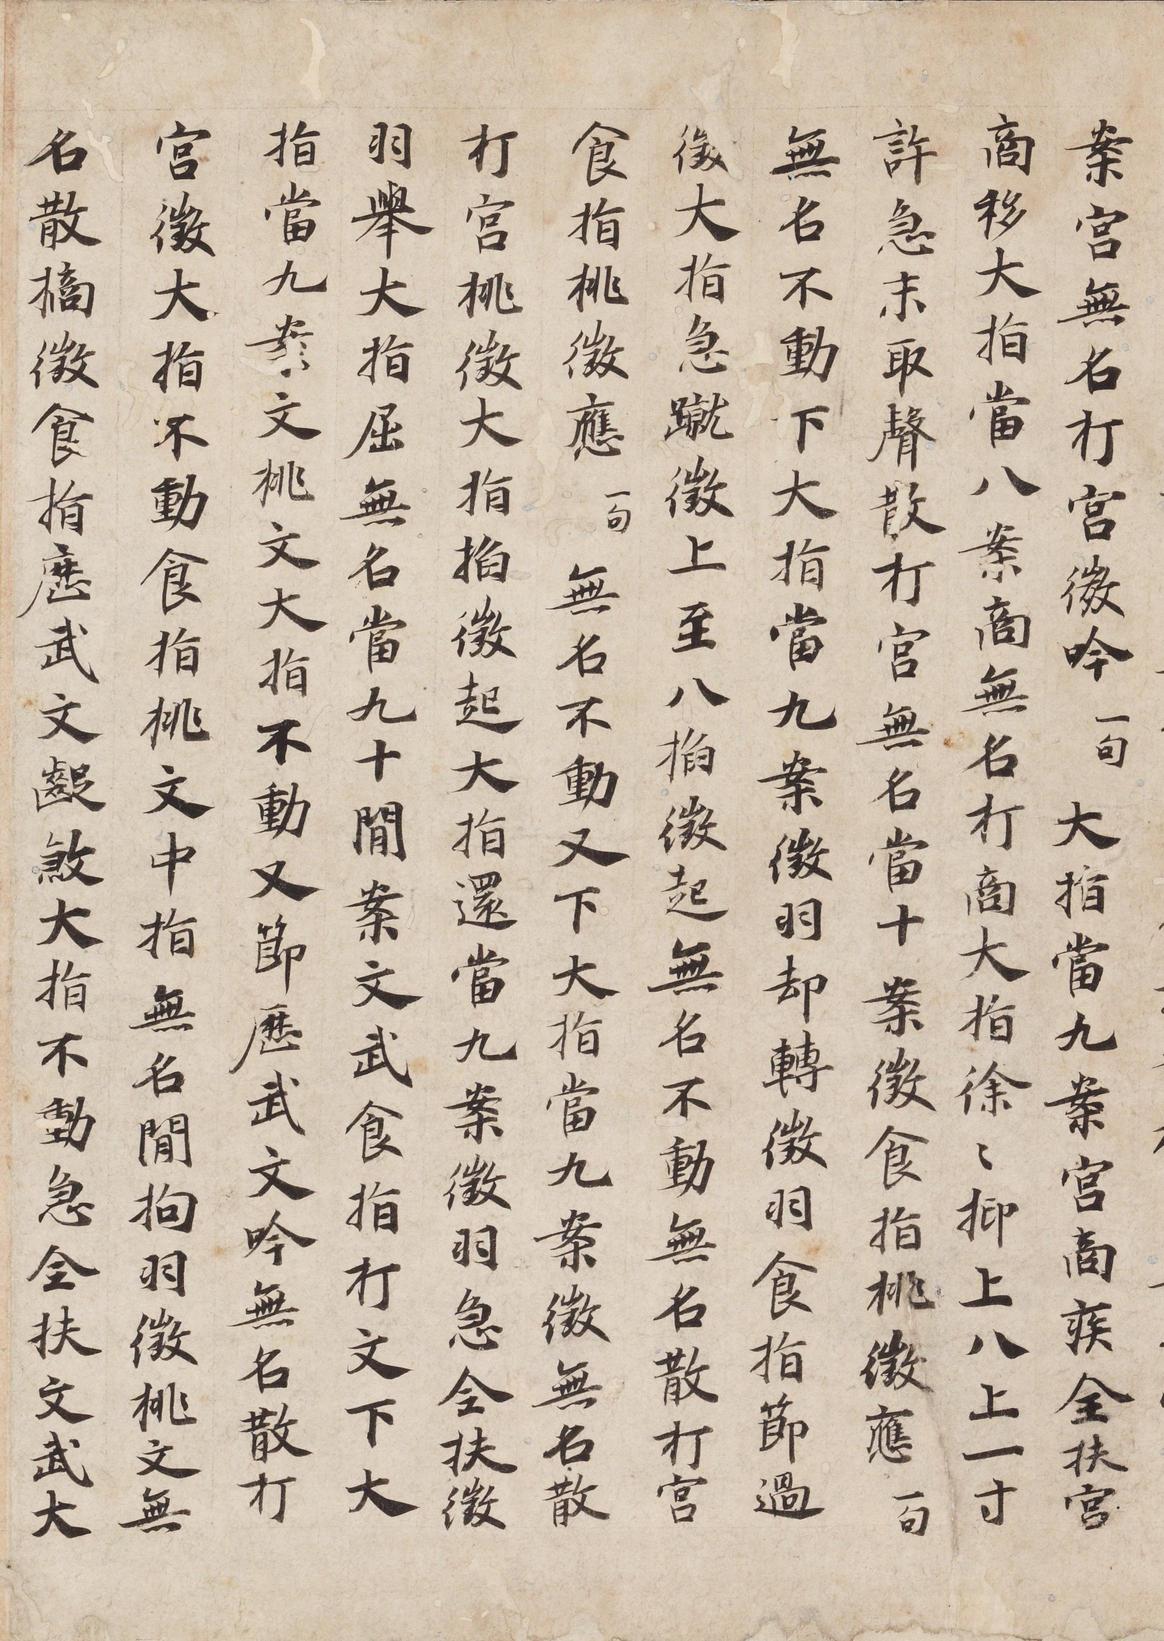 案宮無名打宮徴吟一句大指當九案宮商疾全扶宮
商移大指當八案商無名打商大指徐〻抑上八上一寸
許急末取聲散打宮無名當十案徴食指挑徴應一句
無名不動下大指當九案徴羽却轉徴羽食指節過
徴大指急蹴徴上至八掐徴起無名不動無名散打宮
食指挑徴應一句無名不動又下大指當九案徴無名散
打宮挑徴大指掐徴起大指還當九案徴羽急全扶徴
羽舉大指屈無名當九十間案文武食指打文下大
指當九案文挑文大指不動又節歷武文吟無名散打
宮徴大指不動食指挑文中指無名間拘羽徴挑文無
名散擿徴食指歷武文齪煞大指不動急全扶文武大